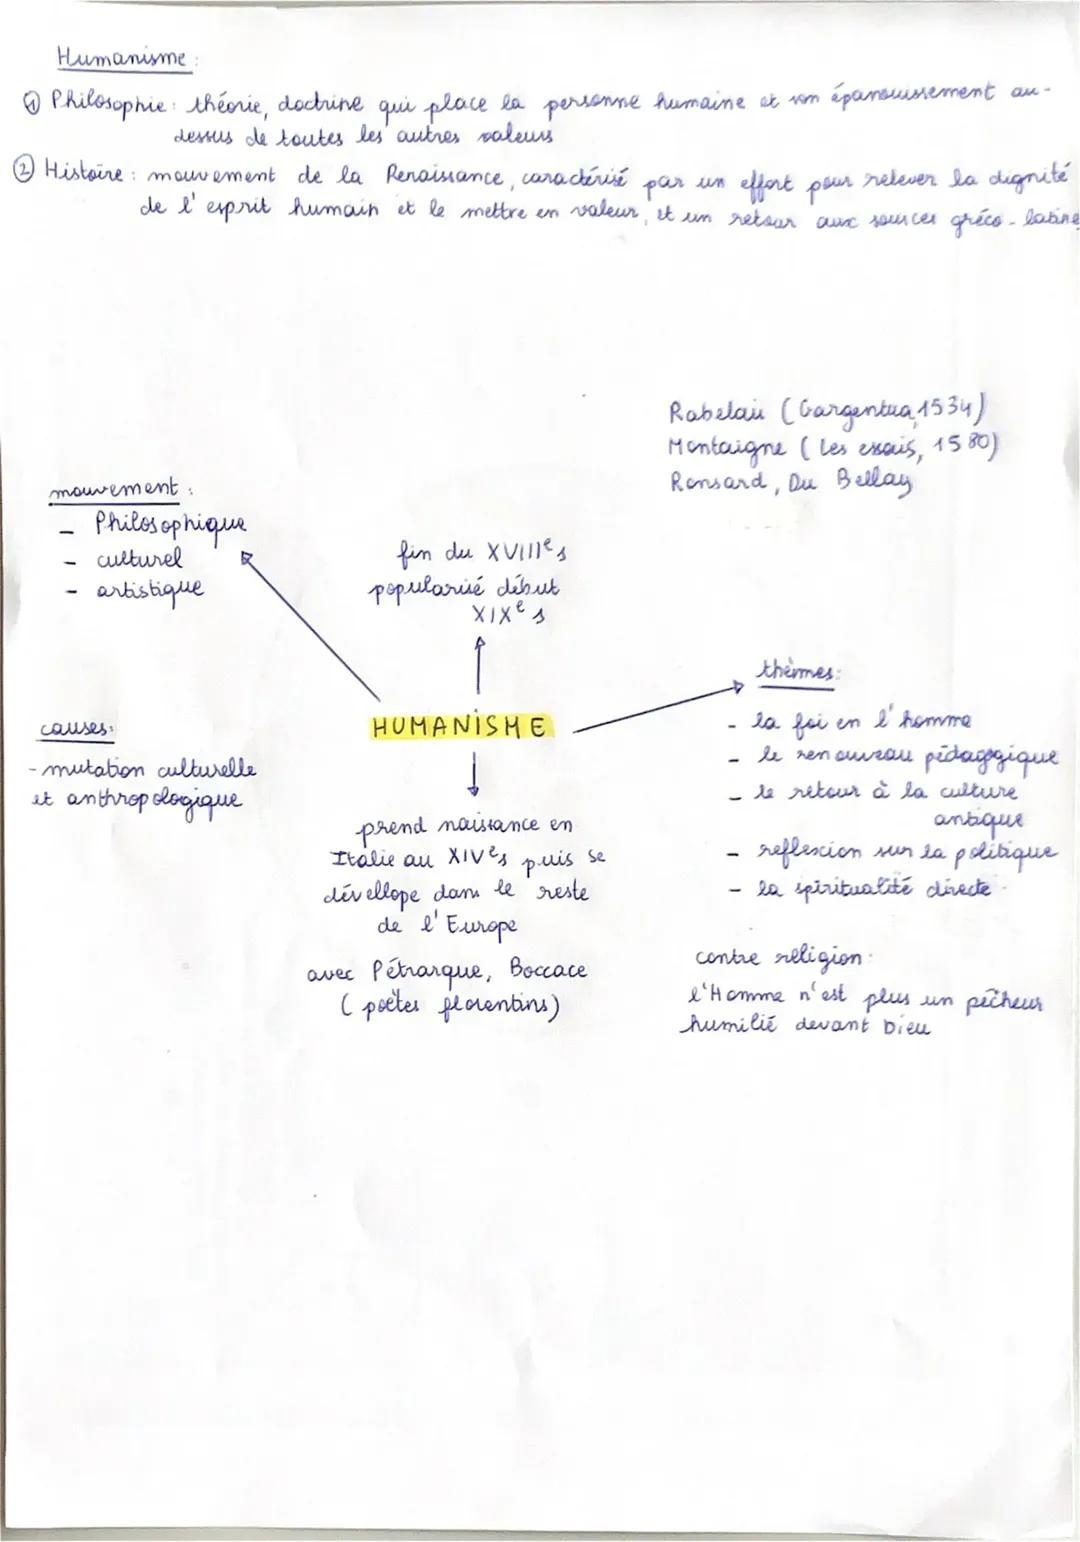 Humanisme :
① Philosophie : théorie, doctrine qui place la personne humaine et son épanouissement au-
dessus de toutes les autres valeurs
② Histoire : mouvement de la Renaissance, caractérisé par un effort pour relever la dignité
de l'esprit humain et le mettre en valeur, et un retour aux sources gréco-latine
Rabelais (Gargentua, 1534)
Montaigne (Les essais, 1580)
Ronsard, Du Bellay
mouvement :
- Philosophique
- culturel
- artistique
fin du XVIIIe s
popularisé début
XIXe s
HUMANISME
causes:
- mutation culturelle
et anthropologique
prend naissance en
Italie au XIVe s puis se
dévellope dans le reste
de l'Europe
avec Pétrarque, Boccace
(poètes florentins)
thèmes:
- la foi en l'homme
- le renouveau pédagogique
- le retour à la culture
antique
- reflexion sur la politique
- la spiritualité directe
contre religion :
l'Homme n'est plus un pêcheur
humilié devant Dieu